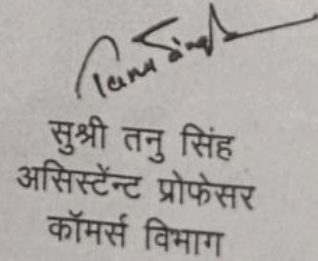 Tanu Singh
सुश्री तनु सिंह
असिस्टेंन्ट प्रोफेसर
कॉमर्स विभाग